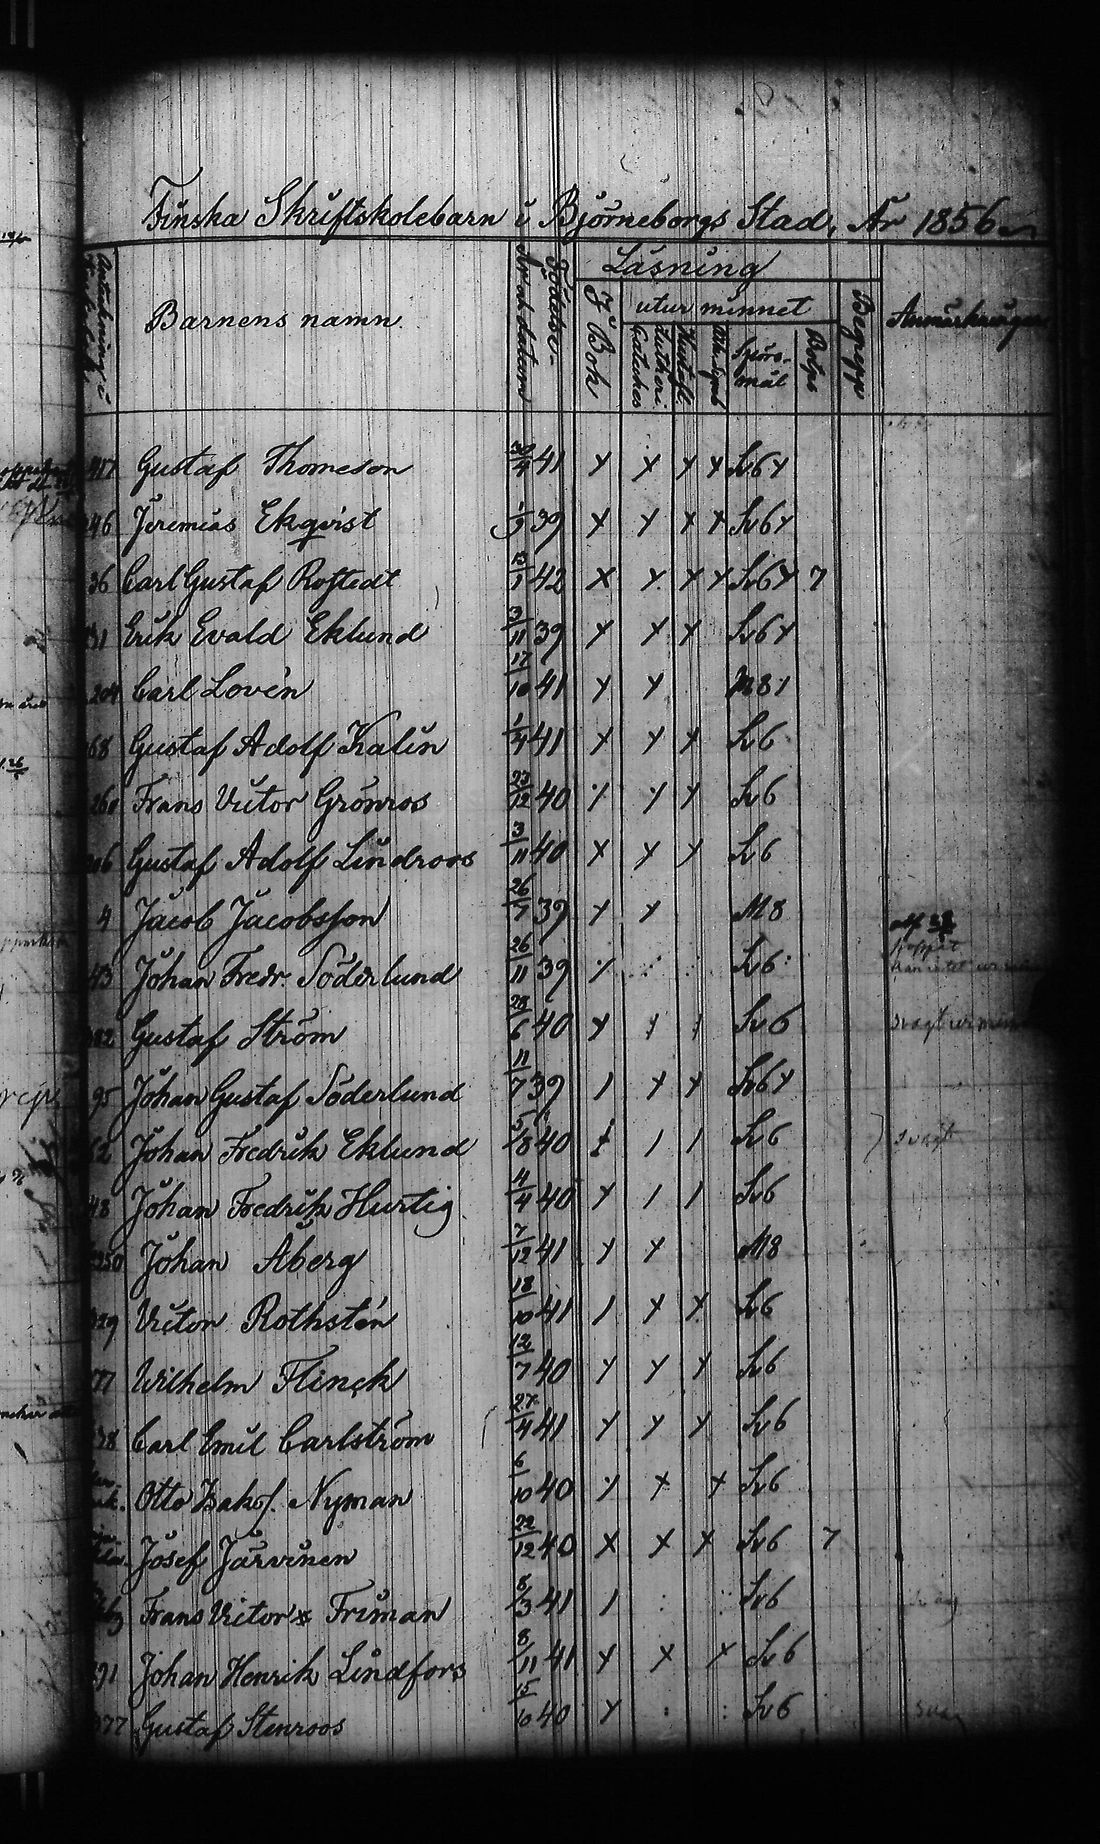 Finska Skriftskolebarn i Björneborgs Stad, År 1856
Läsning
Barnens namn
Födelse-
År och datum
I Bok
utur minnet
Lutheri Cateches
Hustafl.
Spörs-
mål
Botps
Begrepp
Anmärkningar
217 Gustaf Thomeson 41 x x x x Sv6 x
46 Jeremias Ekqvist 1/9 39 x x x x Sv6 x
36 Carl Gustaf Rostedt 13/1 42 x x x x Sv6 x 7
31 Erik Evald Eklund 3/11 39 x x x Sv6 x
204 Carl Lovén 17/10 41 x x M8 1
68 Gustaf Adolf Kalin 1/4 41 x x x Sv6
260 Frans Victor Grönroos 23/12 40 x x x Sv6
Gustaf Adolf Lindroos 3/11 40 x x x Sv6
4 Jacob Jacobsson 26/7 39 x x M8
43 Johan Fredr. Söderlund 26/11 39 x Sv6
82 Gustaf Ström 28/6 40 x x 1 Sv6 svagt ur minnet
95 Johan Gustaf Söderlund 11/7 39 1 x x Sv6 x
62 Johan Fredrik Eklund 5/8 40 1 1 Sv6 svagt
48 Johan Fredrik Hurtig 11/4 40 x 1 1 Sv6
250 Johan Åberg 7/12 41 x x M8
229 Victor Rothstén 18/10 41 1 x x Sv6
77 Wilhelm Flinck 12/7 40 x x x Sv6
38 Carl Emil Carlström 27/4 41 x x x Sv6
Otto Isaks. Nyman 6/10 40 x x x Sv6
Josef Järvinen 22/12 40 x x x Sv6 7
Frans Victor Friman 8/3 41 1 Sv6
Johan Henrik Lindfors 8/11 41 x x x Sv6
377 Gustaf Stenroos 15/10 40 x Sv6 svag